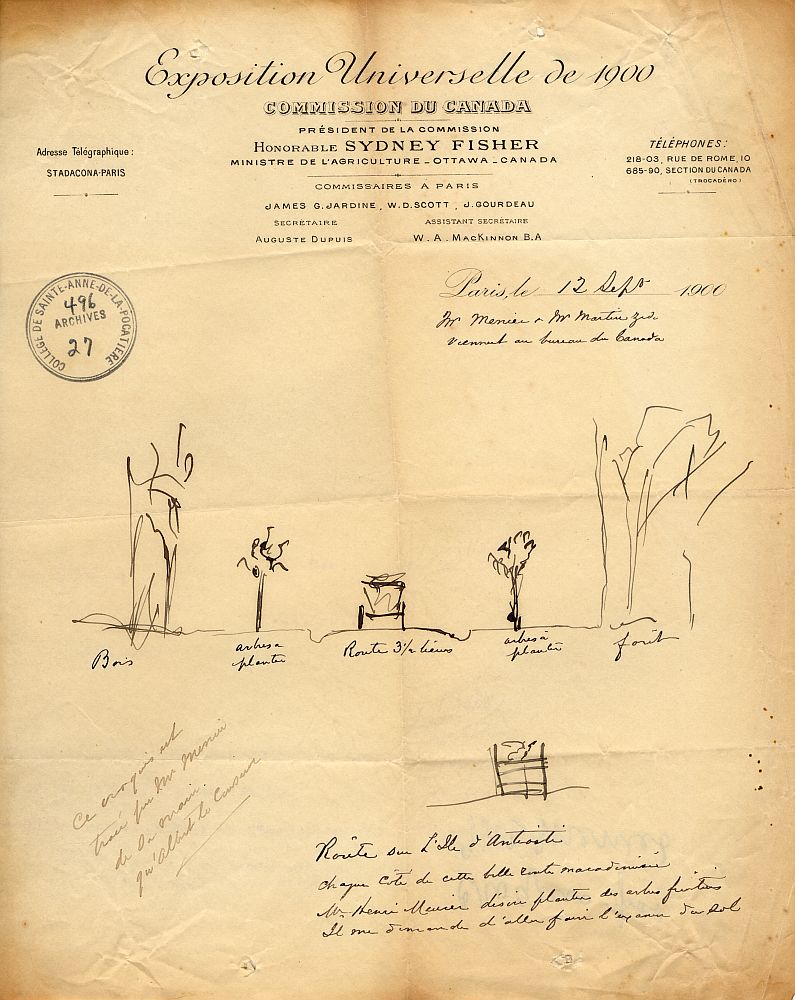 Exposition Universelle de 1900
COMMISSION DU CANADA
PRÉSIDENT DE LA COMMISSION
HONORABLE SYDNEY FISHER
MINISTRE DE L'AGRICULTURE - OTTAWA - CANADA
Adresse Télégraphique :
STADACONA-PARIS
TÉLÉPHONES :
218-03, RUE DE ROME, 10
685-90, SECTION DU CANADA
(TROCADÉRO)
COMMISSAIRES A PARIS
JAMES G. JARDINE, W. D. SCOTT, J. GOURDEAU
SECRÉTAIRE
ASSISTANT SECRÉTAIRE
AUGUSTE DUPUIS
W. A. MACKINNON B.A
Paris, le 12 Sept 1900
Mr Menier & Mr Martin Zed
viennent au bureau du Canada
COLLÈGE DE SAINTE-ANNE-DE-LA-POCATIÈRE
496
ARCHIVES
27
Bois
arbres à
planter
Route 3½ lieues
arbres à
planter
forêt
Ce croquis est
tracé par Mr Menier
de sa main
qu'Albert le
Route sur L'Ile d'Anticosti
chaque côté de cette belle route macadamisée
Mr Henri Menier désire planter des arbres fruitiers
Il me demande d'aller faire l'examen du sol